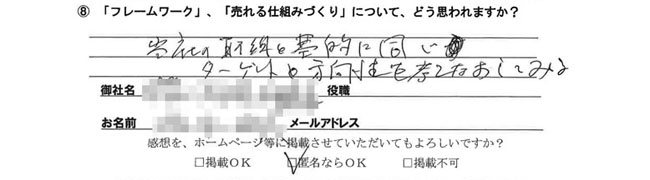 ⑧ 「フレームワーク」、「売れる仕組みづくり」について、どう思われますか？
当社の取組と基的に同じ
ターゲットの方向性を考えなおしてみる
御社名 役職
お名前 メールアドレス
感想を、ホームページ等に掲載させていただいてもよろしいですか？
□掲載OK □匿名ならOK □掲載不可